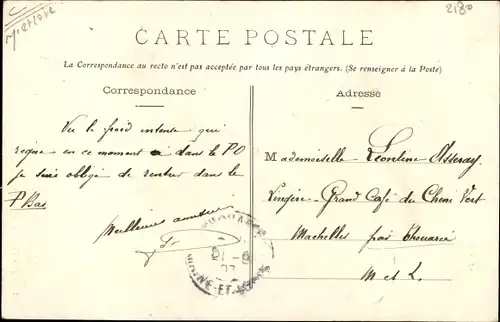 2180
CARTE POSTALE
La Correspondance au recto n'est pas acceptée par tous les pays étrangers. (Se renseigner à la Poste)
Correspondance
Vu le froid intense qui
règne en ce moment dans le PO
je suis obligé de rentrer dans le
P Bas
Meilleures
Adresse
Mademoiselle Léontine
Lingère - Grand Café du Chene Vert
par Thouarcé
M et L.